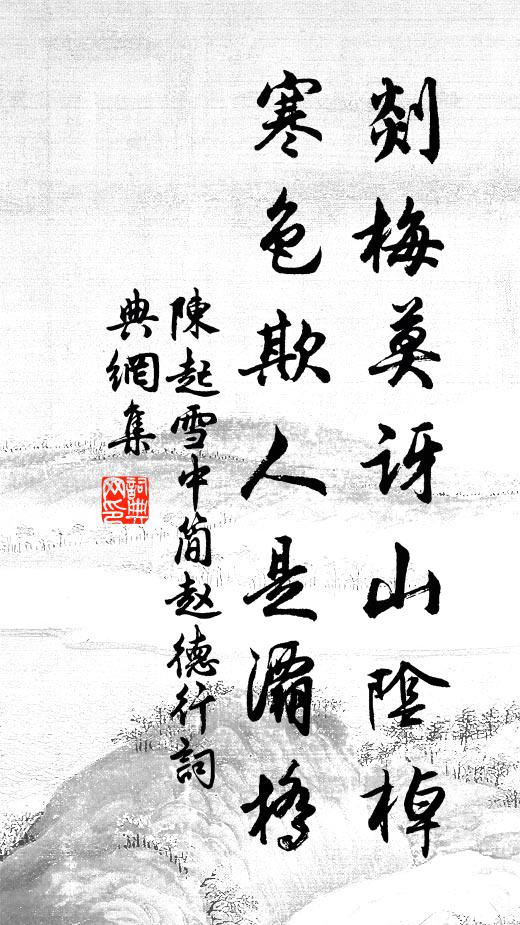 剡梅莫訝山陰棹
寒色欺人是灞橋
陳起雪中简赵德行詞
典網集
詞典網印